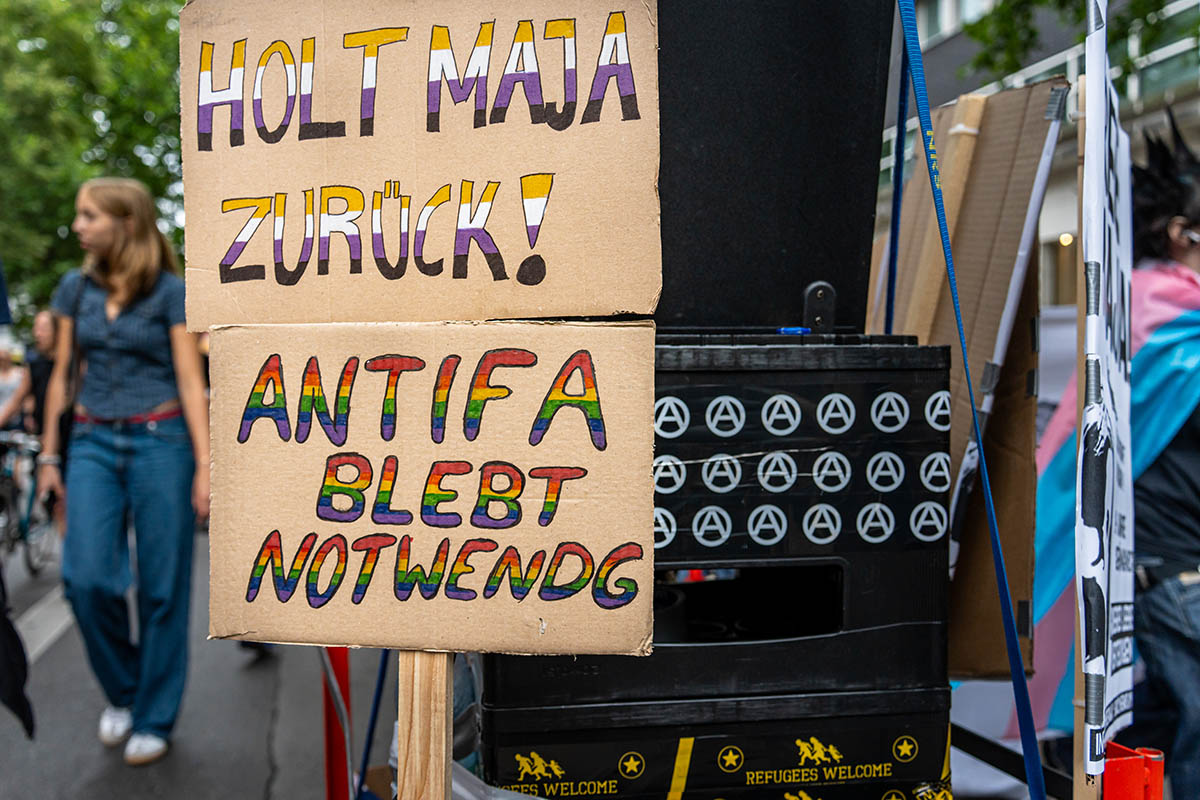 HOLT MAJA
ZURÜCK!
ANTIFA
BLEBT
NOTWENDG
GEES WELCOME
REFUGEES WELCOME